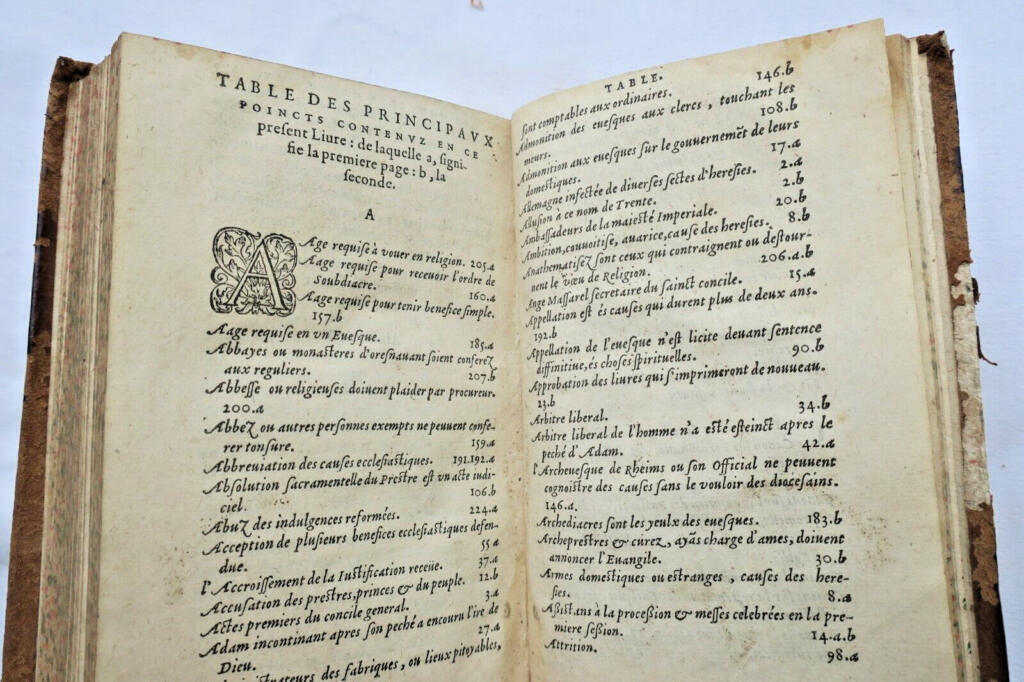 TABLE DES PRINCIPAVX
POINCTS CONTENVZ EN CE
present Liure : de laquelle a, signi-
fie la premiere page : b, la
seconde.
A
Aage requise à vouer en religion. 205.a
Aage requise pour receuoir l'ordre de
Soubdiacre. 160.a
Aage requise pour tenir benefice simple.
157.b
Aage requise en vn Euesque. 185.a
Abbayes ou monasteres d'oresnauant soient conferez
aux reguliers. 207.b
Abbesse ou religieuses doiuent plaider par procureur.
200.a
Abbez ou autres personnes exempts ne peuuent confe-
rer tonsure. 159.a
Abbreuiation des causes ecclesiastiques. 191.192.a
Absolution sacramentelle du Prestre est vn acte iudi-
ciel. 106.b
Abuz des indulgences reformées. 224.a
Acception de plusieurs benefices ecclesiastiques defen-
due. 55 a
l'Accroissement de la Iustification receüe. 37.a
Accusation des prestres, princes & du peuple. 12.b
Actes premiers du concile general. 3.a
Adam incontinant apres son peché a encouru l'ire de
Dieu. 27.a
des fabriques, ou lieux pitoyables,
TABLE.
sont comptables aux ordinaires. 146.b
Admonition des euesques aux clercs, touchant les
meurs. 108.b
Admonition aux euesques sur le gouuernemēt de leurs
domestiques. 17.a
Allemagne infectée de diuerses sectes d'heresies. 2.a
Allusion à ce nom de Trente. 2.b
Ambassadeurs de la maiesté Imperiale. 20.b
Ambition, conuoitise, auarice, cause des heresies. 8.b
Anathematisez sont ceux qui contraignent ou destour-
nent le vœu de Religion. 206.a.b
Ange Massarel secretaire du sainct concile. 15.a
Appellation est és causes qui durent plus de deux ans.
192.b
Appellation de l'euesque n'est licite deuant sentence
diffinitiue, és choses spirituelles. 90.b
Approbation des liures qui s'imprimeront de nouueau.
23.b
Arbitre liberal. 34.b
Arbitre liberal de l'homme n'a esté esteinct apres le
peché d'Adam. 42.a
l'Archeuesque de Rheims ou son Official ne peuuent
cognoistre des causes sans le vouloir des diocesains.
146.a.
Archediacres sont les yeulx des euesques. 183.b
Archeprestres & curez, ayās charge d'ames, doiuent
annoncer l'Euangile. 30.b
Armes domestiques ou estranges, causes des here-
sies. 8.a
Assistans à la procession & messes celebrées en la pre-
miere session. 14.a.b
Attrition. 98.a